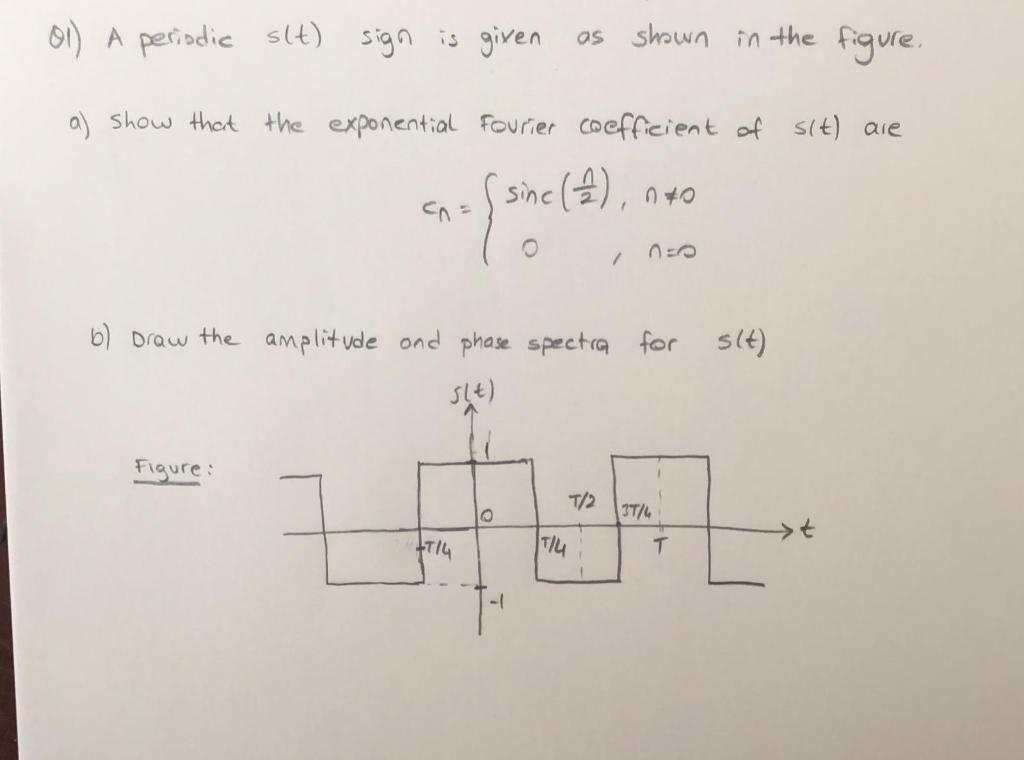 Q1) A periodic s(t) sign is given as shown in the figure.
a) Show that the exponential Fourier coefficient of s(t) are
cn = { sinc(n/2), n≠0
0 , n=0
b) Draw the amplitude and phase spectra for s(t)
s(t)
Figure:
1
T/2
0
3T/4
t
-T/4
T/4
T
-1